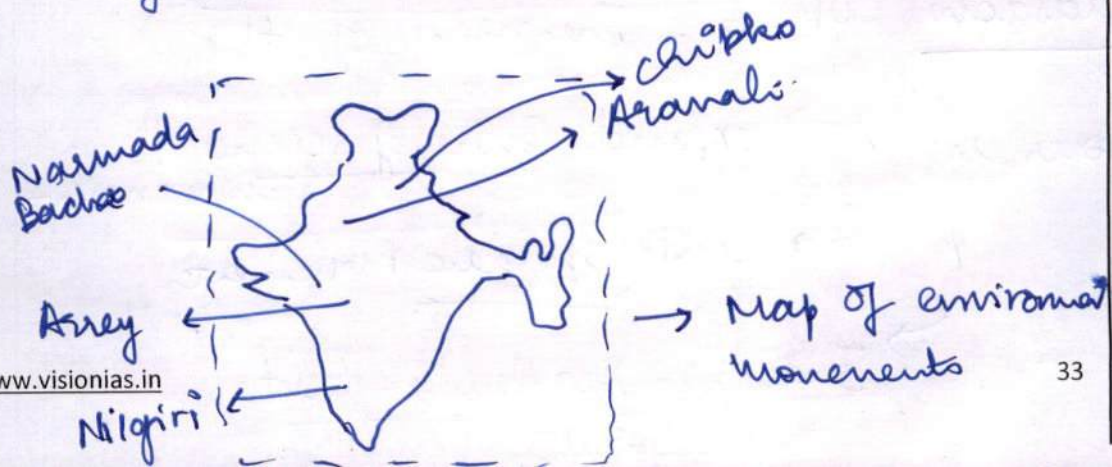 chipko
Aravali
Narmada
Bachao
Arrey
Nilgiri
→ Map of enviroment
movements
www.visionias.in
33